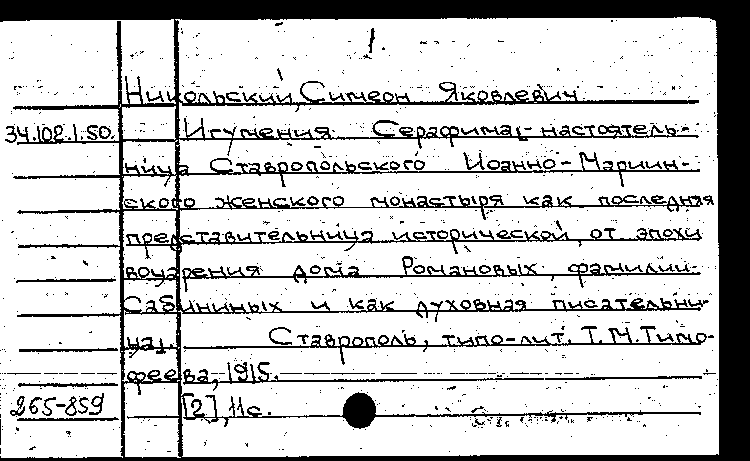 1.
Никольский, Симеон Яковлевич
34.102.1.50. Игумения Серафима,- настоятель-
ница Ставропольского Иоанно-Мариин-
ского женского монастыря как последняя
представительница исторической, от эпохи
воцарения дома Романовых, фамилии
Сабининых и как духовная писательни-
ца. Ставрополь, типо-лит. Т.М.Тимо-
феева, 1915.
265-859 [2], 11с.